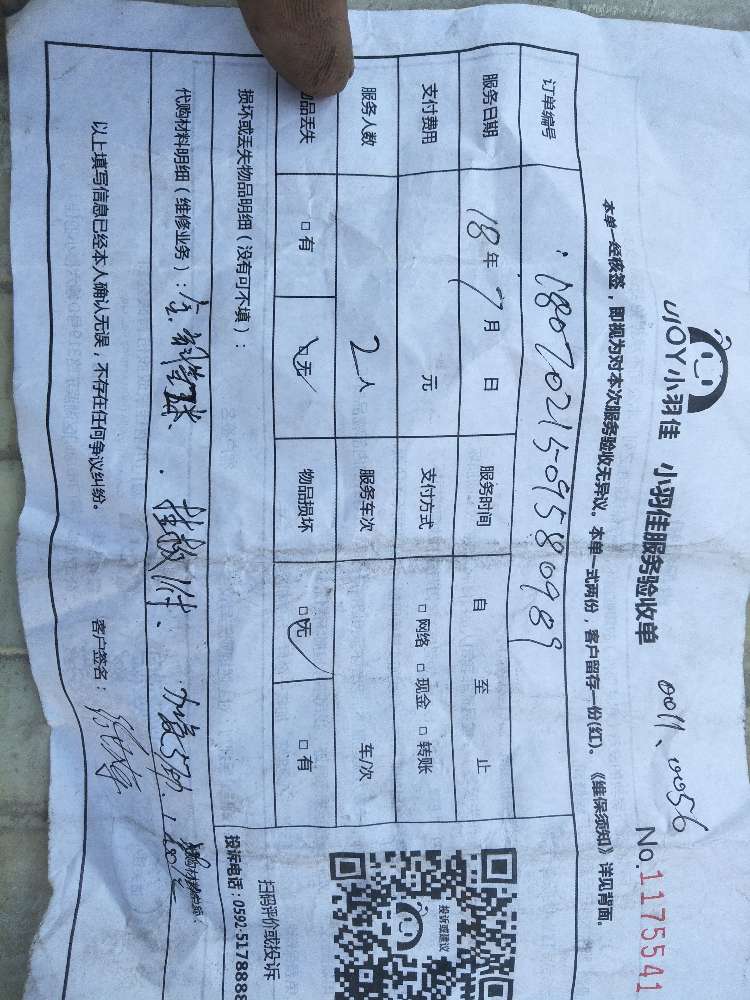 JOY小羽佳 小羽佳服务验收单
0011、0056
No.1175541
本单一经核签，即视为对本次服务验收无异议。本单一式两份，客户留存一份(红)。《维保须知》详见背面。
订单编号 180702159580989
服务日期 18年7月 日 服务时间 自 至 止
支付费用 元 支付方式 □网络 □现金 □转账
服务人数 2人 服务车次 车/次
品丢失 □有 □无 物品损坏 □无 □有
损坏或丢失物品明细（没有可不填）：
代购材料明细（维修业务）：
以上填写信息已经本人确认无误，不存在任何争议纠纷。
客户签名：
投诉或建议
扫码评价或投诉
投诉电话：0592-5178888